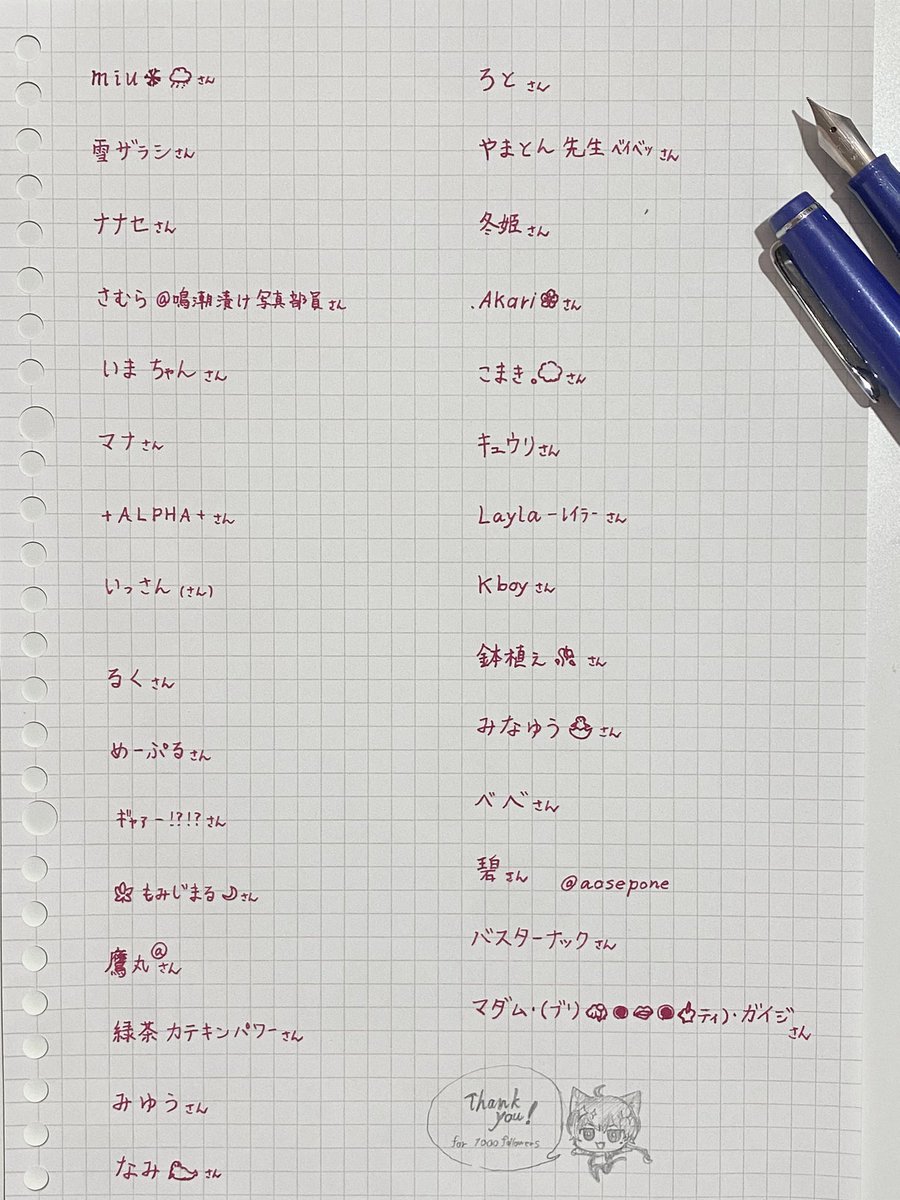 miu さん
雪ザラシさん
ナナセさん
さむら@鳴潮漬け写真部員さん
いまちゃんさん
マナさん
+ALPHA+さん
いっさん(さん)
るくさん
めーぷるさん
ギャァー!?!?さん
もみじまる☽さん
鷹丸@さん
緑茶カテキンパワーさん
みゆうさん
なみ さん
ろとさん
やまとん先生ベイベッさん
冬姫さん
.Akari さん
こまき。さん
キュウリさん
Layla-レイラ-さん
Kboyさん
鉢植え さん
みなゆう さん
ベベさん
碧さん @aosepone
バスターナックさん
マダム・(ブリ ティ)・ガイジさん
Thank
you!
for 1000 followers